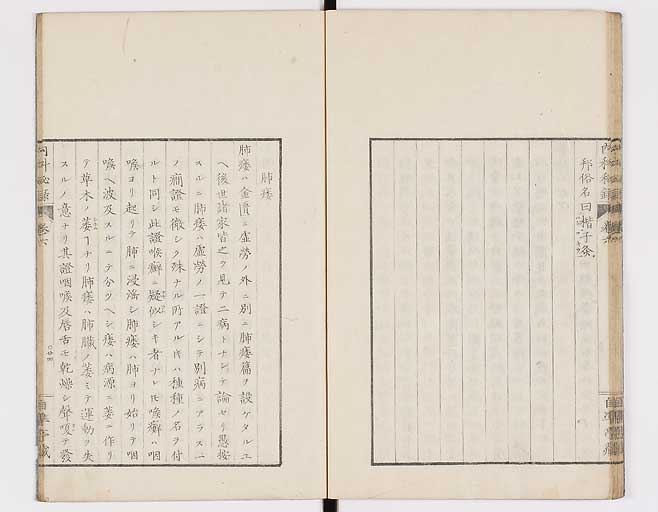 邦俗名曰楷子灸
内科秘録 卷六
肺痿
肺痿ハ金匱ニ虚勞ノ外ニ別ニ肺痿篇ヲ設ケタルユ
ヘ後世諸家皆之ヲ見テ二病トナシテ論セリ愚按
スルニ肺痿ハ虚勞ノ一證ニシテ別病ニアラス一
ノ痼證モ徴シク殊ナル所アル𪜈ハ種種ノ名ヲ付
ルト同シ此證喉癬ニ疑似シキ者ナレ𪜈喉癬ハ咽
喉ヨリ起リテ肺ニ浸淫シ肺痿ハ肺ヨリ始リテ咽
喉ヘ波及スルニテ分ツヘシ痿ハ病源ニ萎ニ作リ
テ草木ノ萎ヿナリ肺痿ハ肺臓ノ萎ミテ運動ヲ失
スルノ意ナリ其證咽喉及唇舌モ乾燥シ聲嗄テ發
内科秘録 卷六
自準亭藏